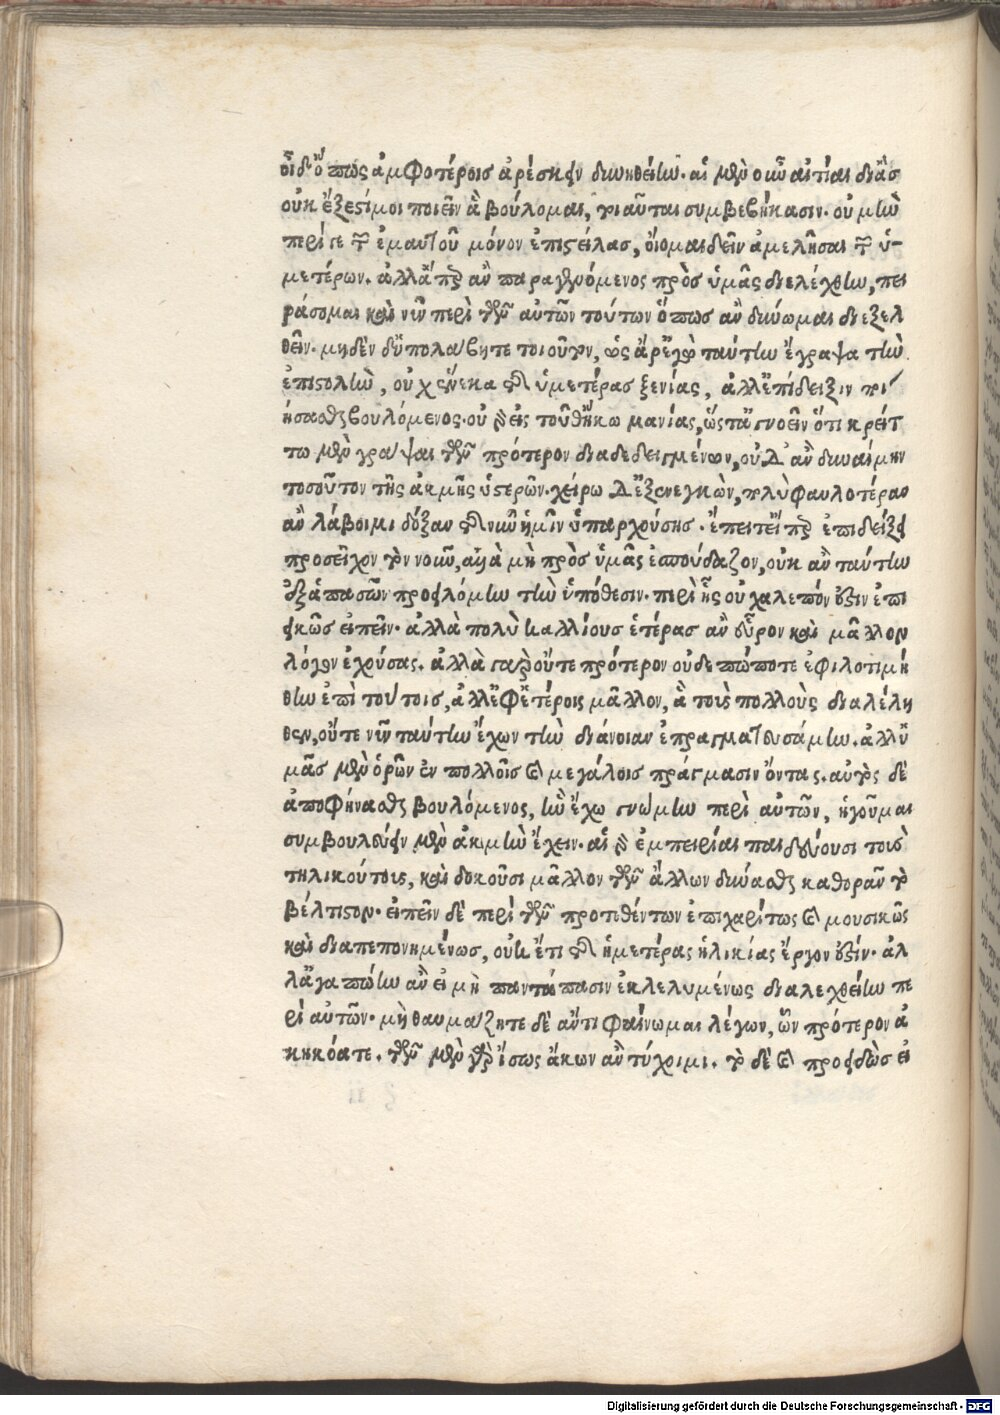 οἶδ' ὅπως ἀμφοτέροις ἀρέσκειν δυνηθείην· αἱ μὲν οὖν αἰτίαι δι' ἃς
οὐκ ἔξεστί μοι ποιεῖν ἃ βούλομαι, τοιαῦται συμβεβήκασιν· οὐ μὴν
περί γε τῶν ἐμαυτοῦ μόνον ἐπιστείλας, οἴομαι δεῖν ἀμελῆσαι τῶν ὑ-
μετέρων. ἀλλ' ἅπερ ἂν παραγενόμενος πρὸς ὑμᾶς διελέχθην, πει
ράσομαι καὶ νῦν περὶ τῶν αὐτῶν τούτων ὅπως ἂν δύνωμαι διεξελ
θεῖν· μηδὲν δ' ὑπολάβητε τοιοῦτον, ὡς ἄρ' ἐγὼ ταύτην ἔγραψα τὴν
ἐπιστολὴν, οὐχ ἕνεκα τῆς ὑμετέρας ξενίας, ἀλλ' ἐπίδειξιν ποι
ήσασθαι βουλόμενος· οὐ γὰρ εἰς τοῦθ' ἥκω μανίας, ὥστ' ἀγνοεῖν ὅτι κρείτ
τω μὲν γράψαι τῶν πρότερον διαδεδειγμένων, οὐδ' ἂν δυναίμην
τοσοῦτον τῆς ἀκμῆς ὑστερῶν· χείρω δ' ἐξενεγκὼν, πολὺ φαυλοτέραν
ἂν λάβοιμι δόξαν τῆς νῦν ἡμῖν ὑπαρχούσης· ἔπειτ' εἴπερ ἐπιδείξει
προσεῖχον τὸν νοῦν, ἀλλὰ μὴ πρὸς ὑμᾶς ἐσπούδαζον, οὐκ ἂν ταύτην
ἐξ ἁπασῶν προειλόμην τὴν ὑπόθεσιν· περὶ ἧς οὐ χαλεπόν ἐστιν ἐπι
εικῶς εἰπεῖν· ἀλλὰ πολὺ καλλίους ἑτέρας ἂν εὗρον καὶ μᾶλλον
λόγον ἐχούσας. ἀλλὰ γὰρ οὔτε πρότερον οὐδεπώποτε ἐφιλοτιμή
θην ἐπὶ τούτοις, ἀλλ' ἐφ' ἑτέροις μᾶλλον, ἃ τοὺς πολλοὺς διαλέλη
θεν, οὔτε νῦν ταύτην ἔχων τὴν διάνοιαν ἐπραγματευσάμην. ἀλλ' ὑ
μᾶς μὲν ὁρῶν ἐν πολλοῖς καὶ μεγάλοις πράγμασιν ὄντας. αὐτὸς δὲ
ἀποφήνασθαι βουλόμενος, ἣν ἔχω γνώμην περὶ αὐτῶν, ἡγοῦμαι
συμβουλεύειν μὲν ἀκμὴν ἔχειν· αἱ γὰρ ἐμπειρίαι παιδεύουσι τοὺς
τηλικούτους, καὶ δοκοῦσι μᾶλλον τῶν ἄλλων δύνασθαι καθορᾶν τὸ
βέλτιστον· εἰπεῖν δὲ περὶ τῶν προτιθέντων ἐπιχαρίτως καὶ μουσικῶς
καὶ διαπεπονημένως, οὐκ ἔτι τῆς ἡμετέρας ἡλικίας ἔργον ἐστίν· ἀλ
λ' ἀγαπώην ἂν εἰ μὴ παντάπασιν ἐκλελυμένως διαλεχθείην πε
ρὶ αὐτῶν· μὴ θαυμάζητε δὲ ἄν τι φαίνωμαι λέγων, ὧν πρότερον ἀ
κηκόατε. τῶν μὲν γὰρ ἴσως ἄκων ἂν τύχοιμι. τὸ δὲ καὶ προειδὼς εἰ
Digitalisierung gefördert durch die Deutsche Forschungsgemeinschaft - DFG